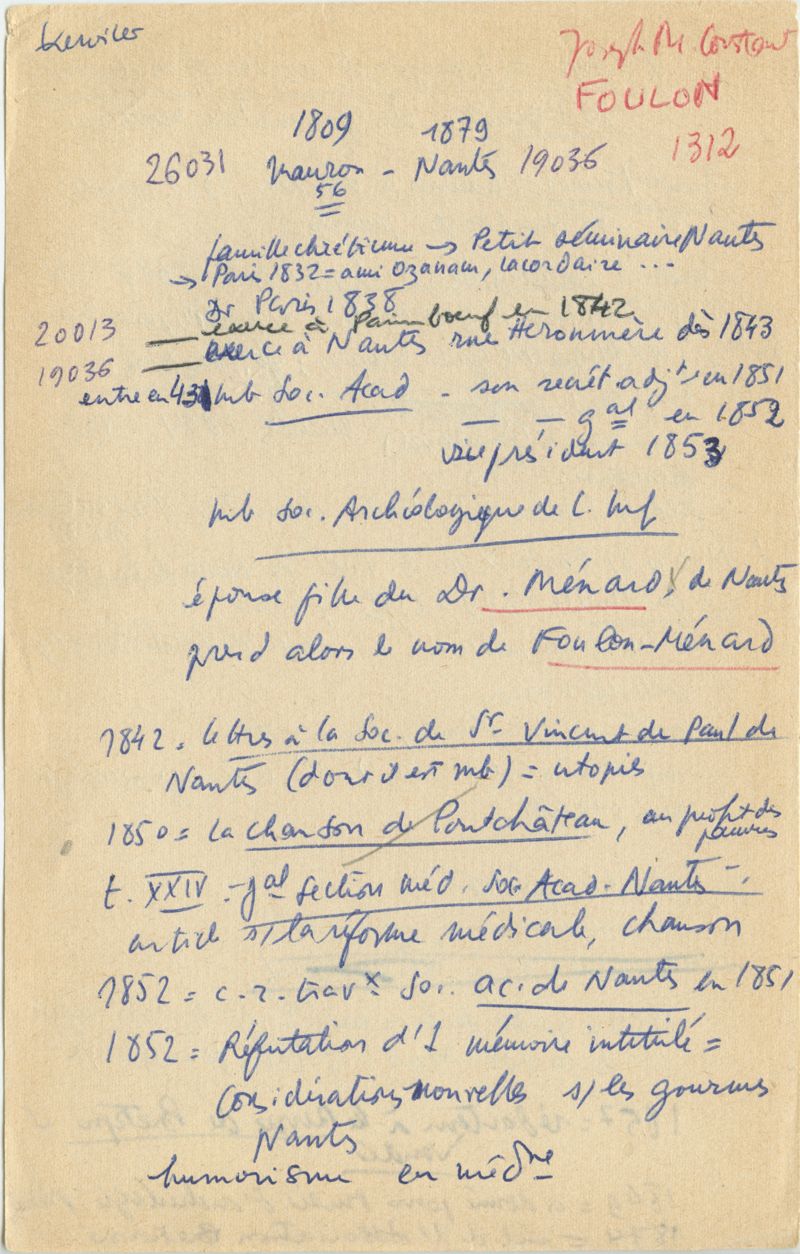 Kerviler
Joseph M. Constant
FOULON
1312
1809 1879
26031 Mauron - Nantes 19036
56
famille chrétienne → Petit séminaire Nantes
→ Paris 1832 = ami Ozanam, Lacordaire ...
Dr Paris 1838
20013 — exerce à Paimboeuf en 1842
19036 — exerce à Nantes rue Héronnière dès 1843
entre en 43 mb Soc. Acad - son secrét adjt en 1851
— — gal en 1852
vice président 1853
mb Soc. Archéologique de L. Inf
épouse fille du Dr. Ménard, de Nantes
prend alors le nom de Foulon-Ménard
1842 = lettres à la Soc. de St Vincent de Paul de
Nantes (dont il est mb) = utopies
1850 = la chanson de Pontchâteau, au profit des
pauvres
t. XXIV - Jal Section méd. Soc. Acad. Nantes -
article s/ la réforme médicale, chanson
1852 = c.r. travx Soc. ac. de Nantes en 1851
1852 = Réfutation d'1 mémoire intitulé =
Considérations nouvelles s/ les gourmes
Nantes
humorisme en médne